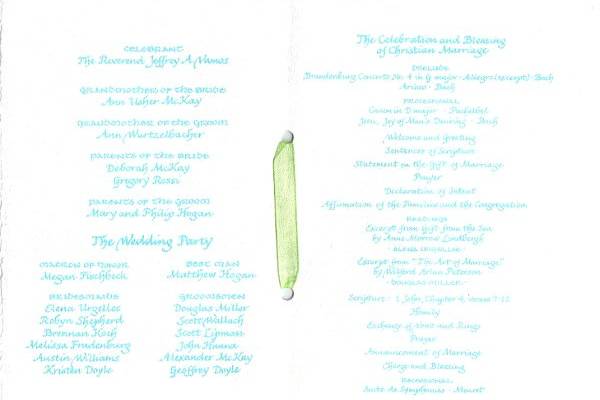 CELEBRANT
The Reverend Jeffrey A. Vamos
GRANDMOTHER OF THE BRIDE
Ann Usher McKay
GRANDMOTHER OF THE GROOM
Ann Wurtzelbacher
PARENTS OF THE BRIDE
Deborah McKay
Gregory Rossi
PARENTS OF THE GROOM
Mary and Philip Hogan
The Wedding Party
MATRON OF HONOR
Megan Fischbeck
BRIDESMAIDS
Elena Urgelles
Robyn Shepherd
Brennan Koch
Melissa Fradenburg
Austin Williams
Kristen Doyle
BEST MAN
Matthew Hogan
GROOMSMEN
Douglas Miller
Scott Wallach
Scott Lipman
John Hanna
Alexander McKay
Geoffrey Doyle
The Celebration and Blessing
of Christian Marriage
PRELUDE
Brandenburg Concerto No. 4 in G major - Allegro (excerpt) - Bach
Arioso - Bach
PROCESSIONAL
Canon in D major - Pachelbel
Jesu, Joy of Man's Desiring - Bach
Welcome and Greeting
Sentences of Scripture
Statement on the Gift of Marriage
Prayer
Declaration of Intent
Affirmation of the Families and the Congregation
READINGS
Excerpt from Gift from the Sea
by Anne Morrow Lindbergh
ELENA URGELLES
Excerpt from "The Art of Marriage"
by Wilferd Arlan Peterson
DOUGLAS MILLER
Scripture - 1 John, Chapter 4, verses 7-12
Homily
Exchange of Vows and Rings
Prayer
Announcement of Marriage
Charge and Blessing
RECESSIONAL
Suite de Symphonies - Mouret